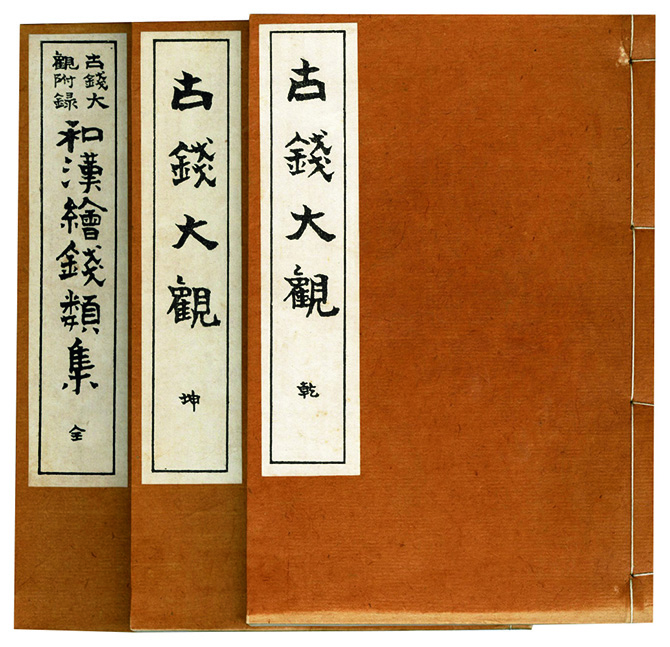 古錢大觀
乾
古錢大觀
坤
古錢大
觀附録
和漢繪錢類集
全